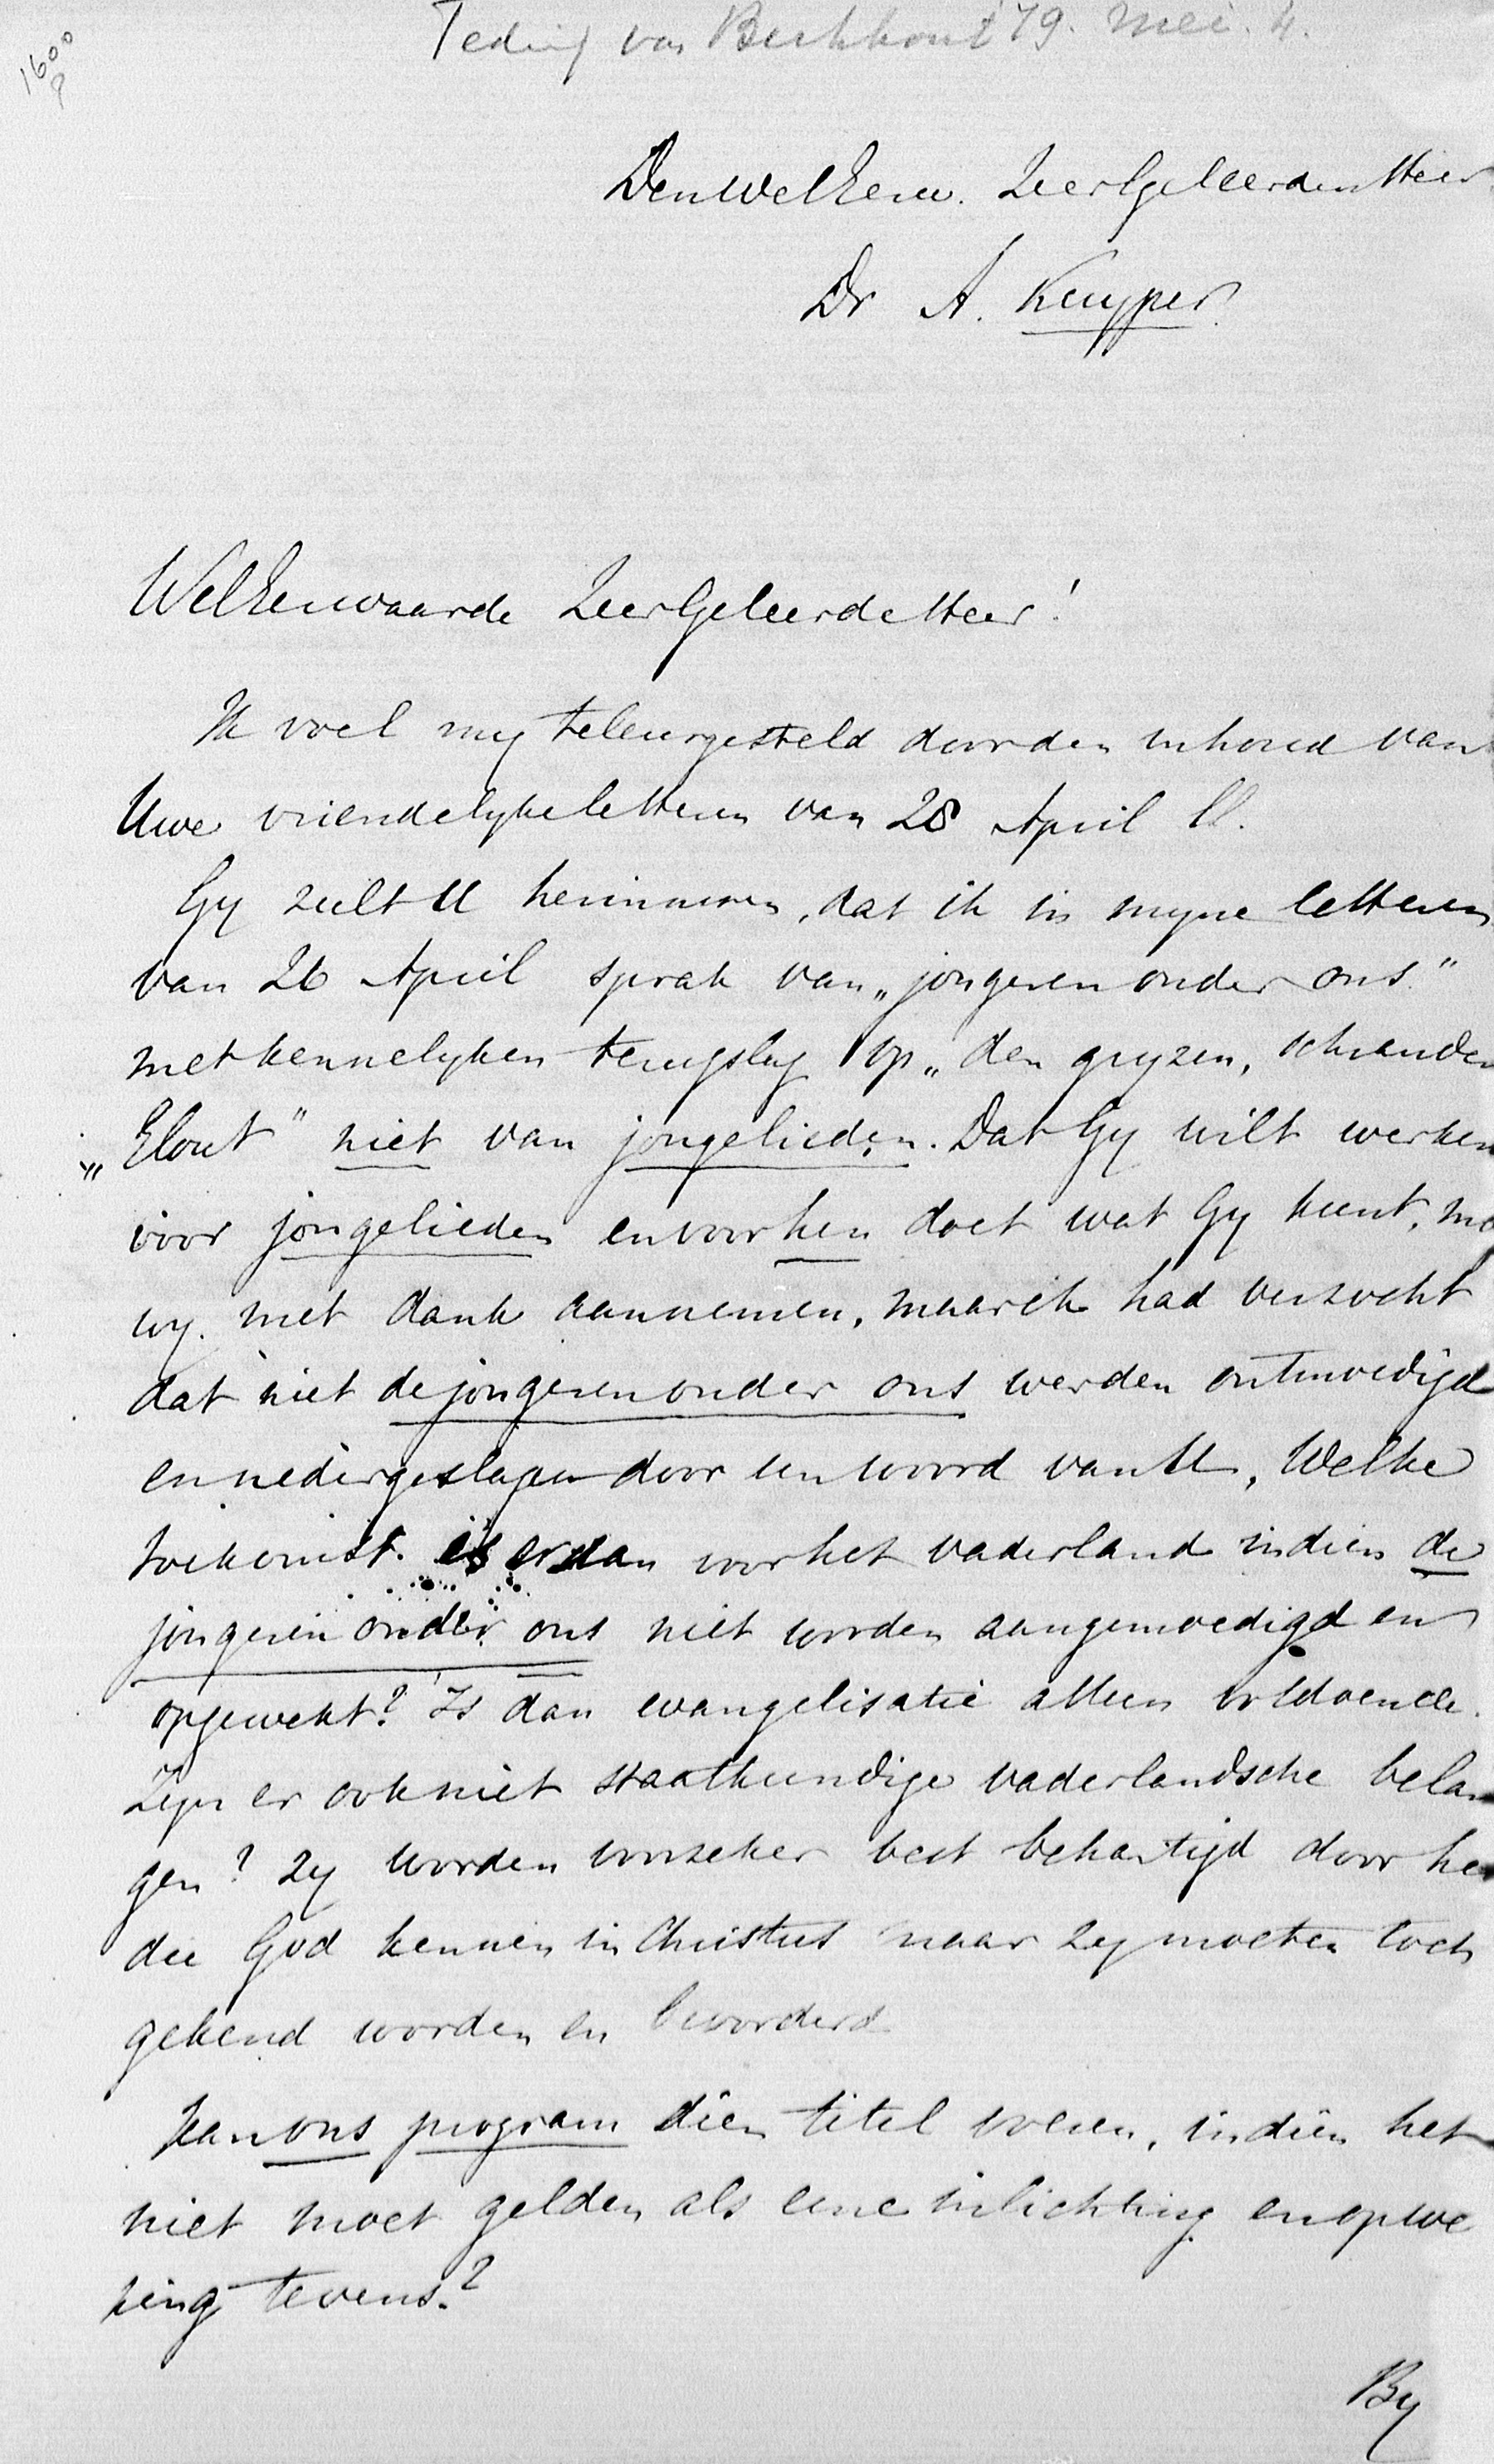 Teding van Berkhout 79. Mei. 4.
1600
Den WelEerw. ZeerGeleerden Heer
Dr A. Kuyper.
WelEerwaarde ZeerGeleerde Heer!
Ik voel my teleurgesteld door den inhoud van
Uwe vriendelyke letteren van 28 April ll.
Gy zult U herinneren, dat ik in myne letteren
van 26 April sprak van „jongeren onder ons"
met kennelyken terugslag op „den gryzen, schranderen
„Elout" niet van jongelieden. Dat Gy wilt werken
voor jongelieden en voor hen doet wat Gy kunt, mo
wy met dank aannemen, maar ik had verzocht
dat niet de jongeren onder ons werden ontmoedigd
en nedergeslagen door een woord van U, Welke
toekomst is er dan voor het vaderland indien de
jongeren onder ons niet worden aangemoedigd en
opgewekt? Is dan evangelisatie alleen voldoende.
Zyn er ook niet staatkundige vaderlandsche belan
gen? Zy worden voorzeker best behartigd door hen
die God kennen in Christus maar zy moeten toch
gekend worden en bevorderd
Kan ons program dien titel voeren, indien het
niet moet gelden als eene inlichting en opwe
king tevens?
By